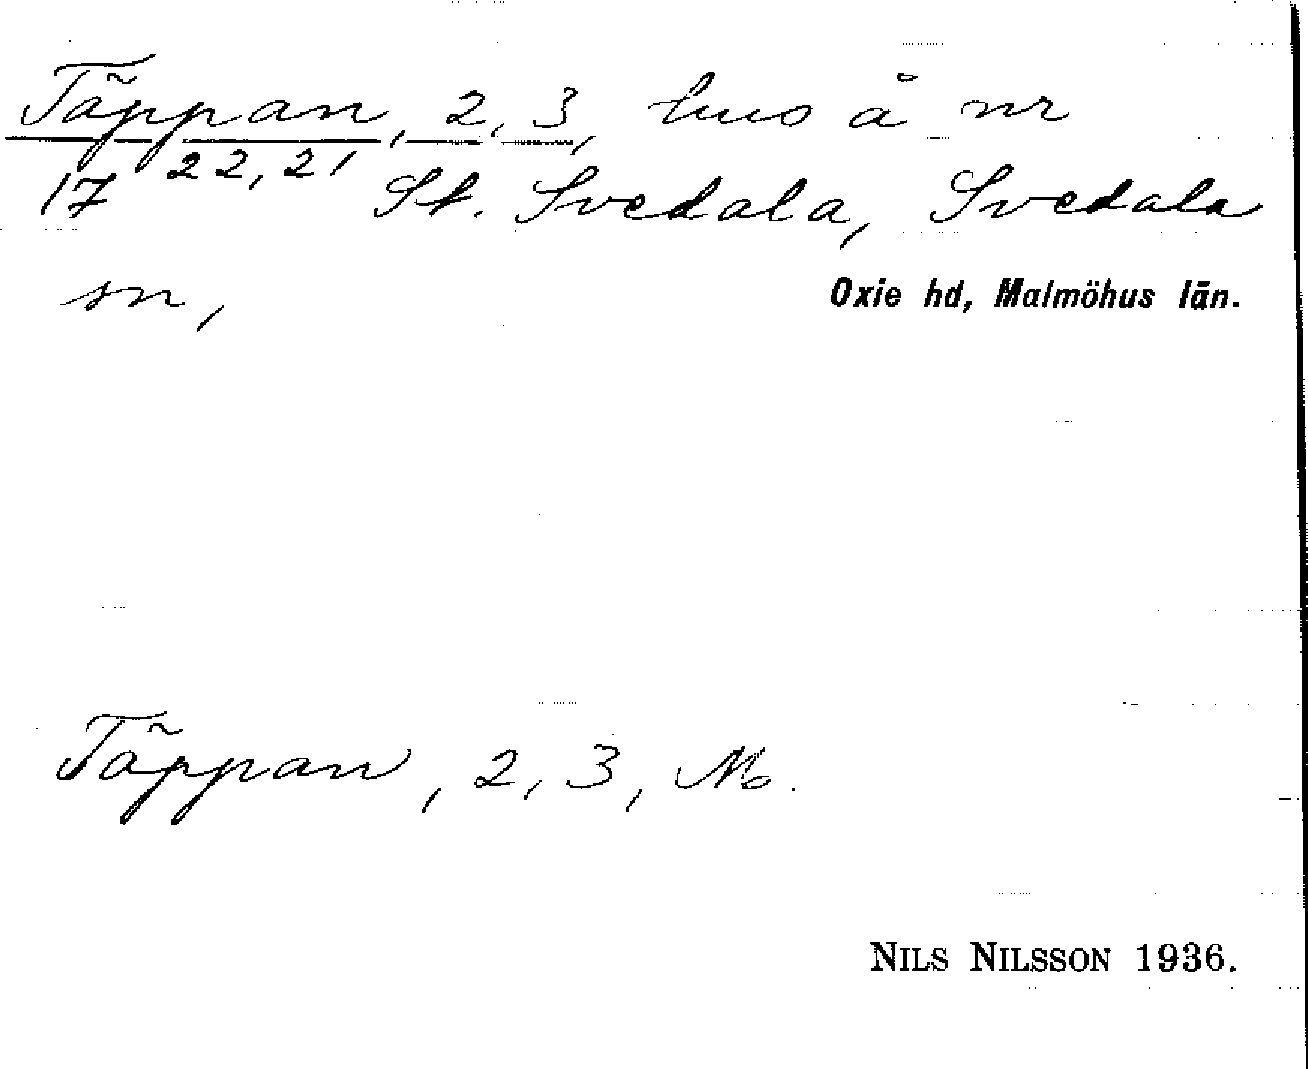 Täppan, 2, 3, hus å nr
17 22, 21 St. Svedala, Svedala
sn,
Oxie hd, Malmöhus län.
Täppan, 2, 3, M.
NILS NILSSON 1936.